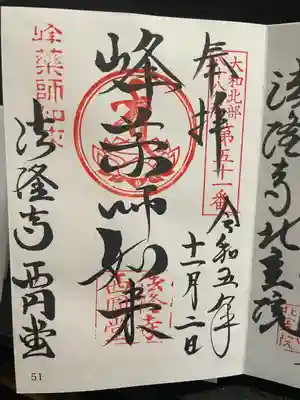 大和北部
第五十一番
奉拝
令和五年
十一月二日
峰薬師如来
峰薬師如来
法隆寺
西円堂
法隆寺 西円堂
51
法隆寺北室院